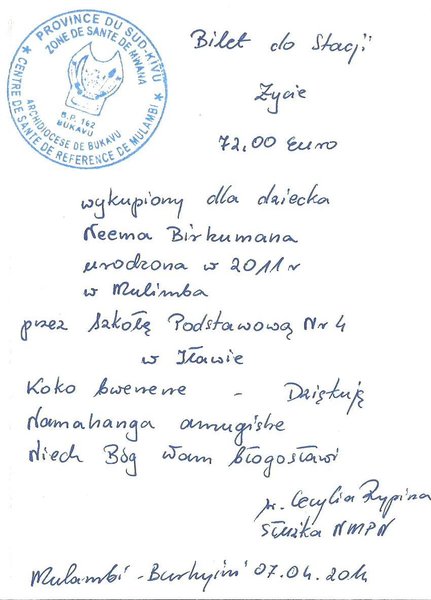 PROVINCE DU SUD-KIVU
ZONE DE SANTE DE MWANA
B.P. 162
BUKAVU
ARCHIDIOCESE DE BUKAVU
CENTRE DE SANTE DE REFERENCE DE MULAMBI
Bilet do Stacji
Życie
72,00 Euro
wykupiony dla dziecka
Neema Birkumana
urodzona w 2011 r
w Mulimba
przez Szkołę Podstawową Nr 4
w Iławie
Koko bwenene - Dziękuję
Namahanga amugishe
Niech Bóg Wam błogosławi
Cecylia
Służka NMPN
Mulambi - 07.04.2014